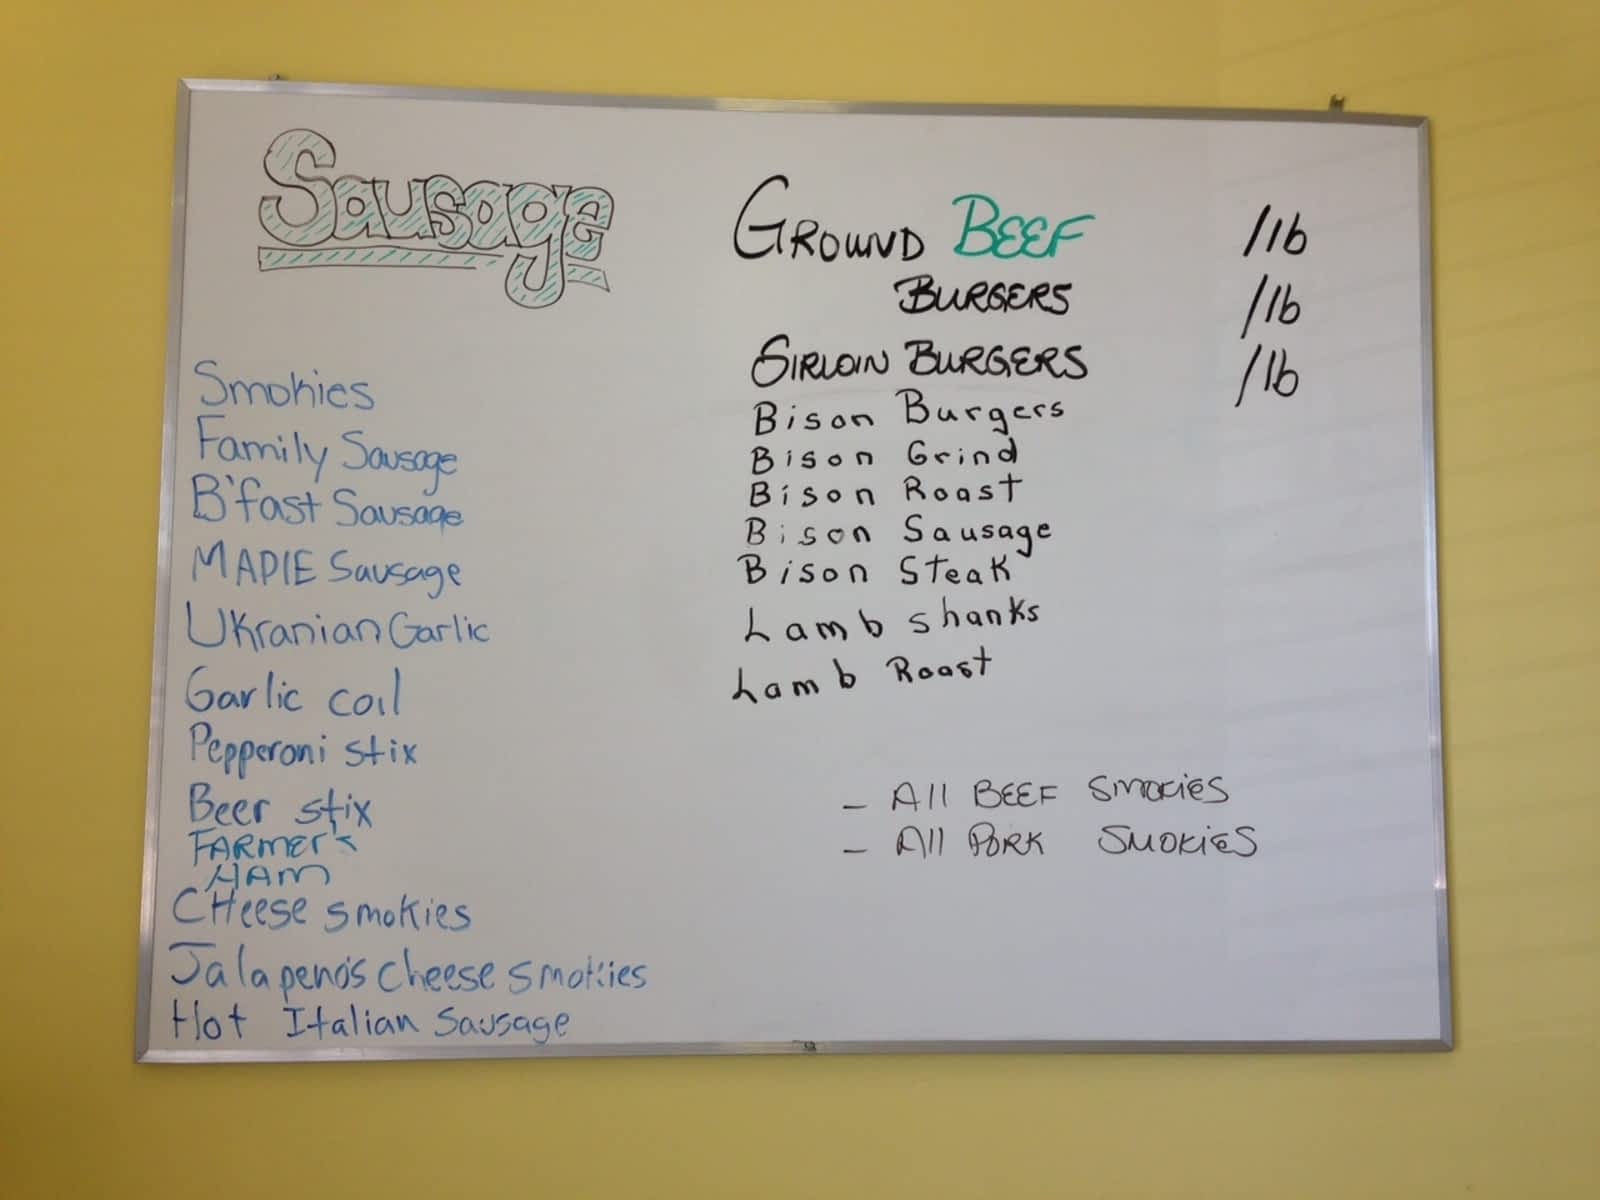 Sausage
Smokies
Family Sausage
B'fast Sausage
MAPlE Sausage
UKranian Garlic
Garlic coil
Pepperoni stix
Beer stix
FARMER's
HAM
CHeese smokies
Jalapeno's cheese smokies
Hot Italian Sausage
GROUND BEEF /lb
BURGERS /lb
SIRLOIN BURGERS /lb
Bison Burgers
Bison Grind
Bison Roast
Bison Sausage
Bison Steak
Lamb shanks
Lamb Roast
- All BEEF SMOKiES
- All PORK SMOKiES